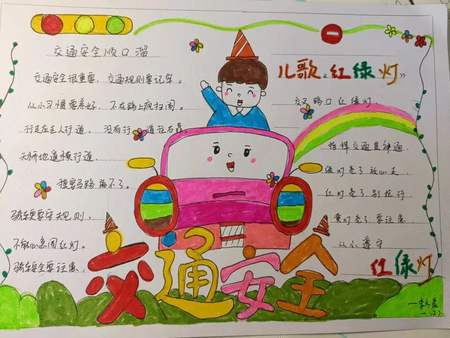 交通安全顺口溜
交通安全很重要,交通规则要记牢。
从小习惯要养好,不在路上疯打闹。
行走应走人行道,没有行道往右靠。
天桥地道横行道,
横穿马路离不了。
骑车更要守规则,
不能心急闯红灯。
骑车安全要注意。
儿歌《红绿灯》
交叉路口红绿灯,
指挥交通显神通
绿灯亮了放心走
红灯亮了别抢行
黄灯亮了要注意
从小遵守
红绿灯
交通安全